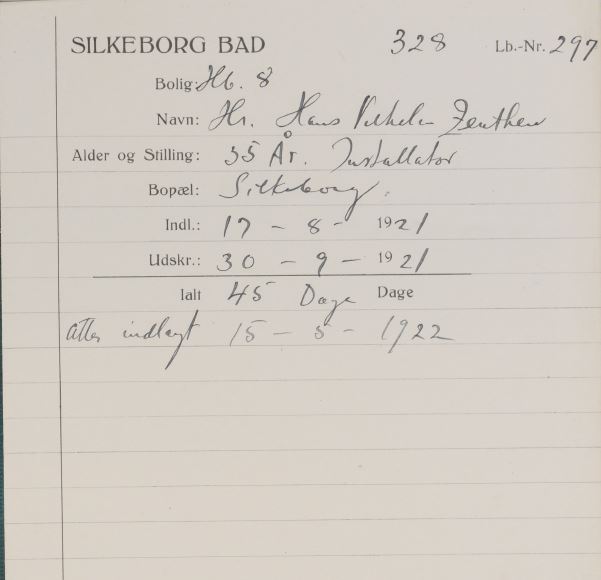 SILKEBORG BAD 328 Lb.-Nr. 297
Bolig: Hb. 8
Navn: Hr. Hans Vilhelm Zeuthen
Alder og Stilling: 55 År. Installatør
Bopæl: Silkeborg.
Indl.: 17 - 8 - 1921
Udskr.: 30 - 9 - 1921
Ialt 45 Dage Dage
atter indlagt 15 - 5 - 1922